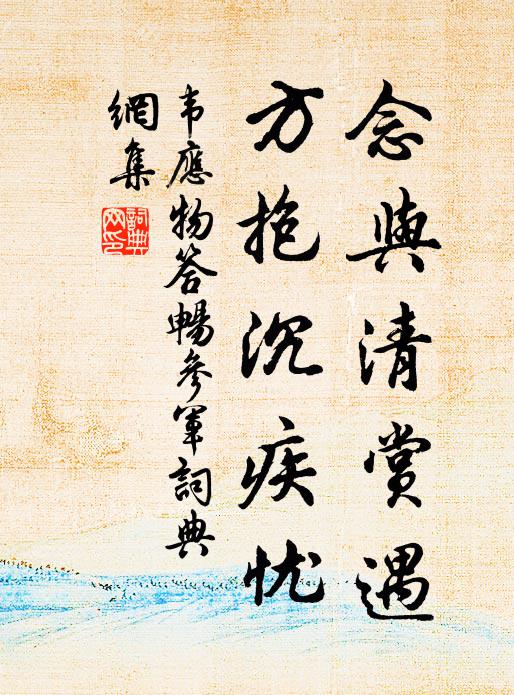 念與清赏遇
方抱沉疾忧
韦應物答暢參軍詞典
網集
詞典
网印